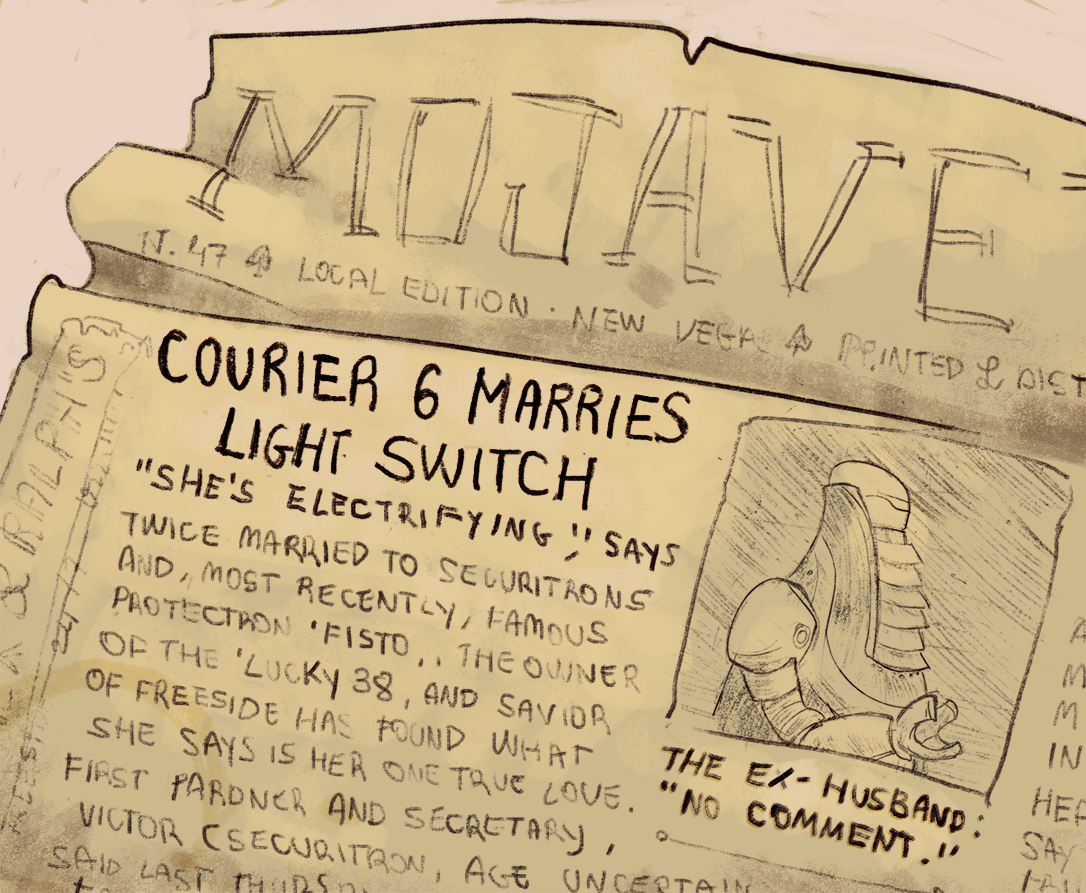 MOJAVE
N. 47 LOCAL EDITION · NEW VEGAS PRINTED & DIST
COURIER 6 MARRIES
LIGHT SWITCH
"SHE'S ELECTRIFYING," SAYS
TWICE MARRIED TO SECURITRONS
AND, MOST RECENTLY, FAMOUS
PROTECTRON 'FISTO,. THE OWNER
OF THE 'LUCKY 38, AND SAVIOR
OF FREESIDE HAS FOUND WHAT
SHE SAYS IS HER ONE TRUE LOVE.
FIRST PARDNER AND SECRETARY,
VICTOR (SECURITRON, AGE UNCERTAIN
SAID LAST THURSD
THE EX-HUSBAND:
"NO COMMENT."
& RALPH'S
24/7
IN
HEA
SAY